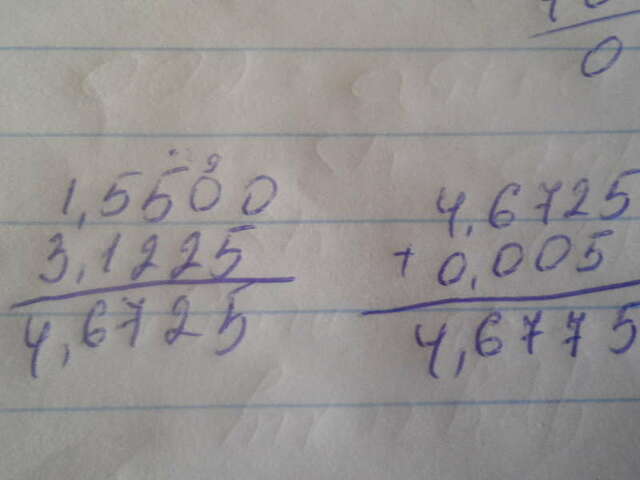 0
1,5500
3,1225
4,6725
4,6725
+ 0,005
4,6775